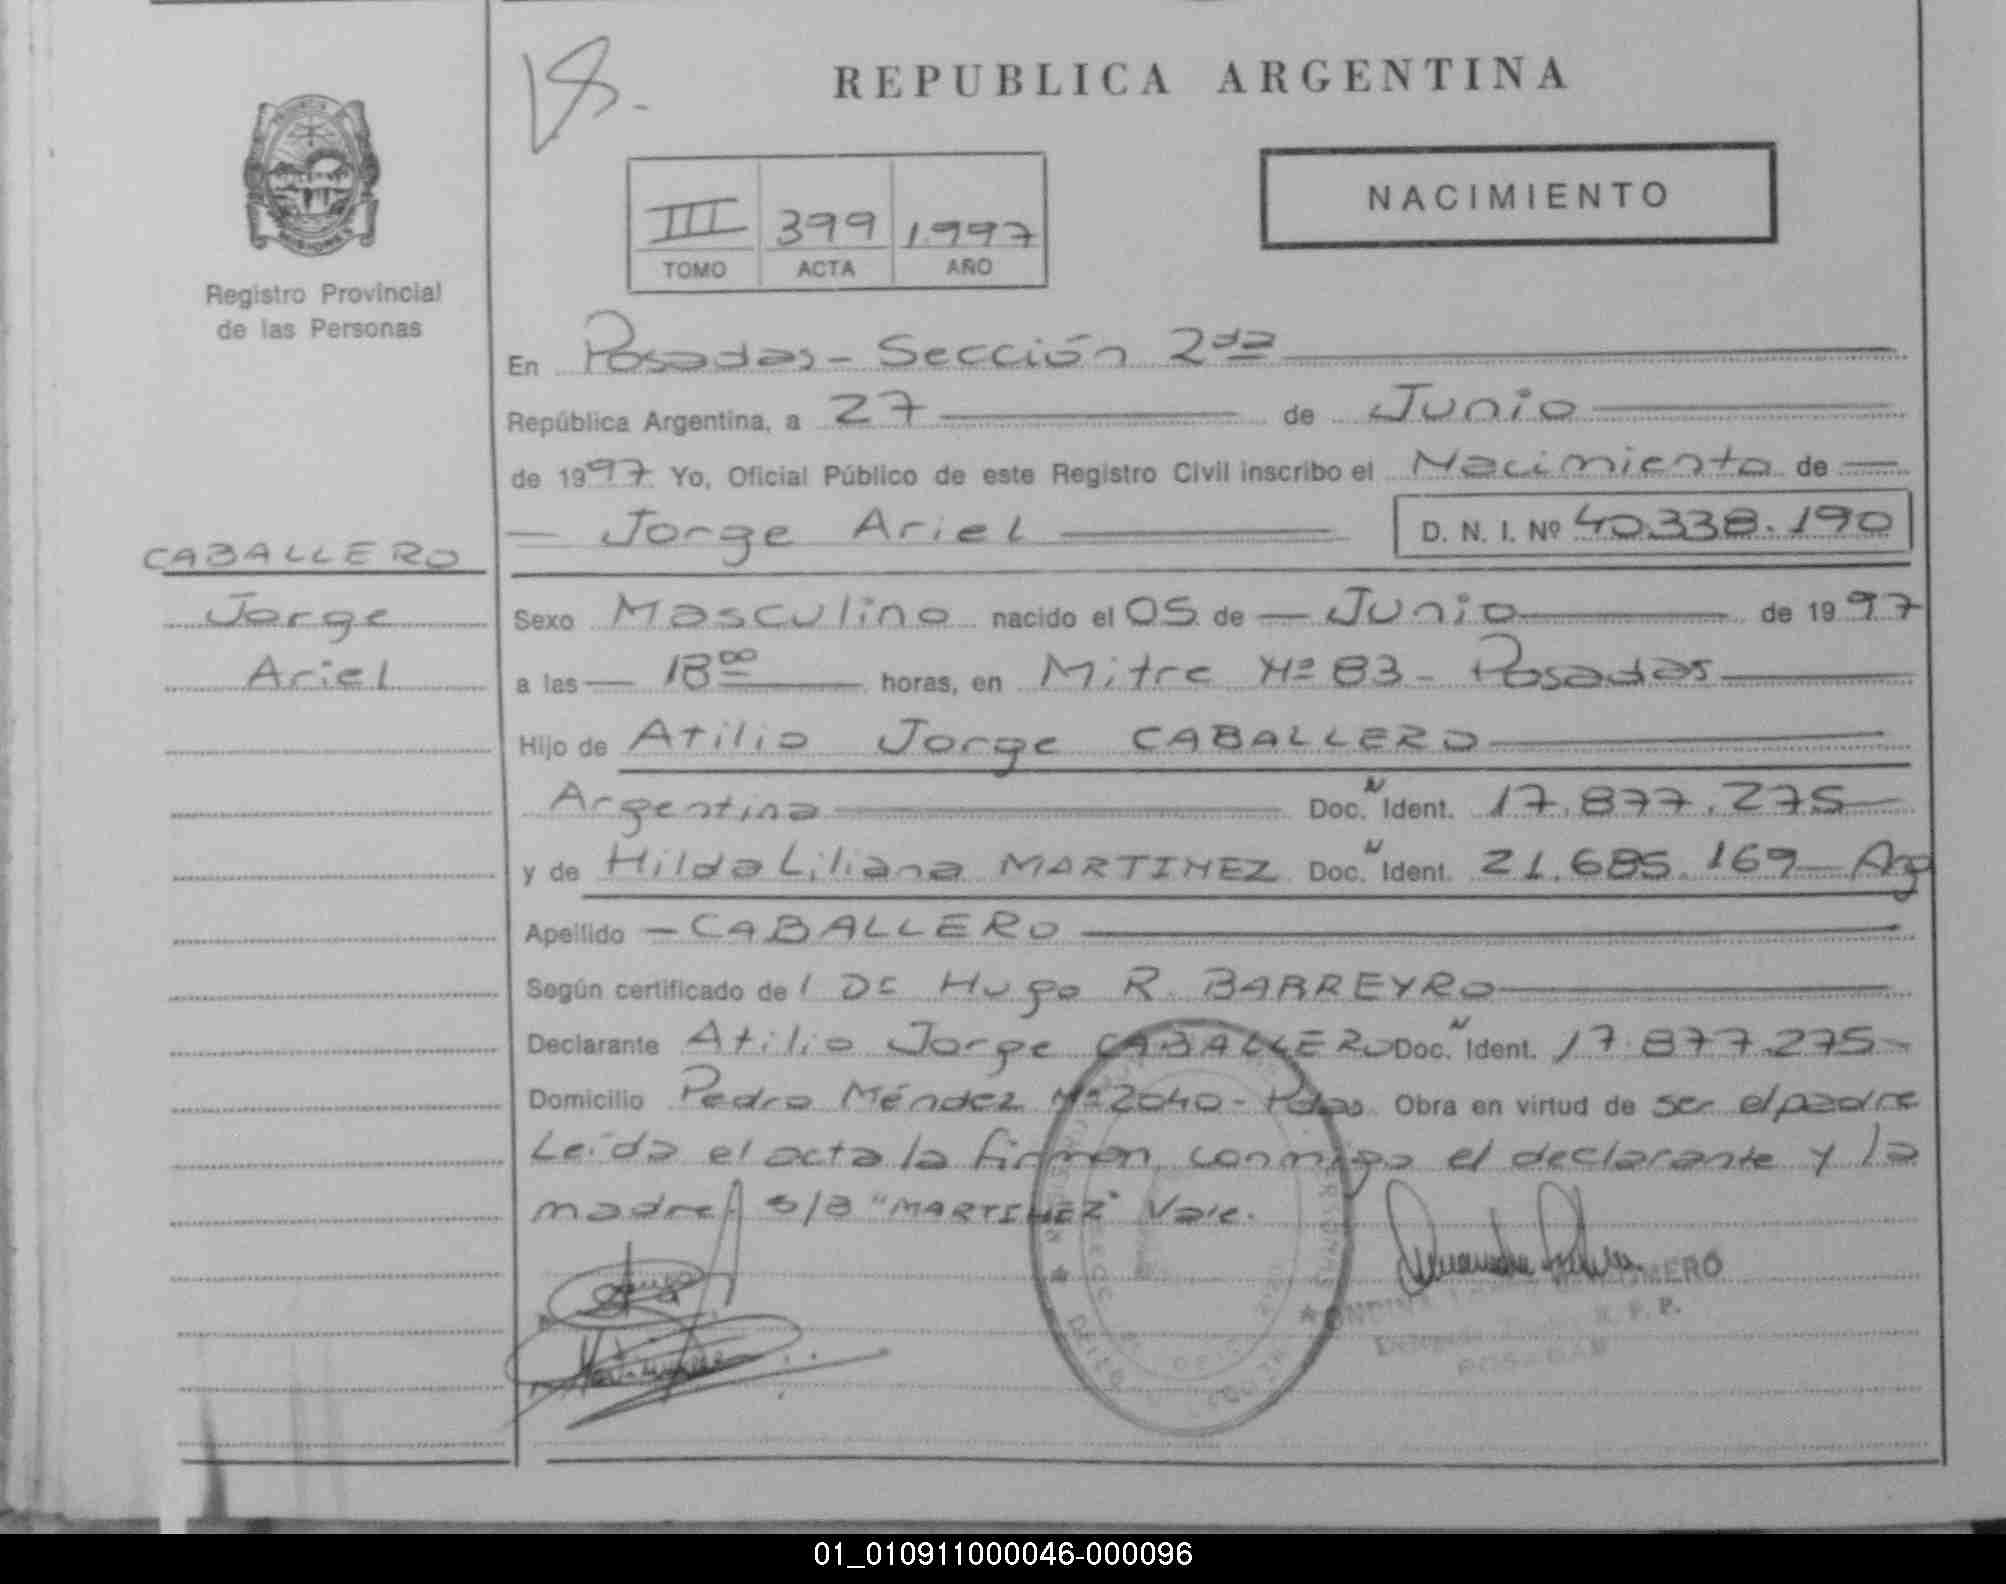 REPUBLICA ARGENTINA
NACIMIENTO
III 399 1997
TOMO ACTA AÑO
Registro Provincial
de las Personas
En Posadas - Sección 2da
República Argentina, a 27 de Junio
de 1997 Yo, Oficial Público de este Registro Civil inscribo el Nacimiento de
Jorge Ariel D. N. I. Nº 40.338.190
CABALLERO
Jorge
Ariel
Sexo Masculino nacido el 05 de Junio de 1997
a las 18 00 horas, en Mitre Nº 83 - Posadas
Hijo de Atilio Jorge CABALLERO
Argentina Doc. Ident. 17.877.275
y de Hilda Liliana MARTINEZ Doc. Ident. 21.685.169 - Arg
Apellido - CABALLERO
Según certificado de l Dr Hugo R. BARREYRO
Declarante Atilio Jorge CABALLERO Doc. Ident. 17.877.275
Domicilio Pedro Méndez Nº 2040 - Pdas Obra en virtud de ser el padre
Leída el acta la firman conmigo el declarante y la
madre. S/B "MARTINEZ" Vale.
R. P. P.
POSADAS
01_010911000046-000096